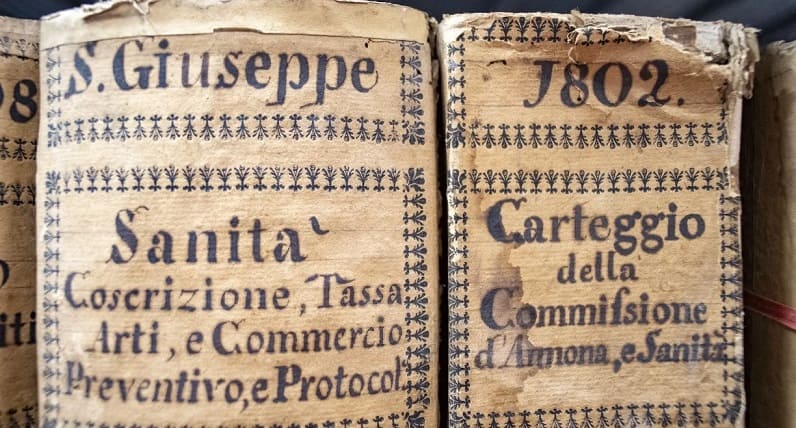 S. Giuseppe
Sanita`
Coscrizione, Tassa
Arti, e Commercio
Preventivo, e Protocol.
1802.
Carteggio
della
Commiſsione
d'Annona, e Sanità